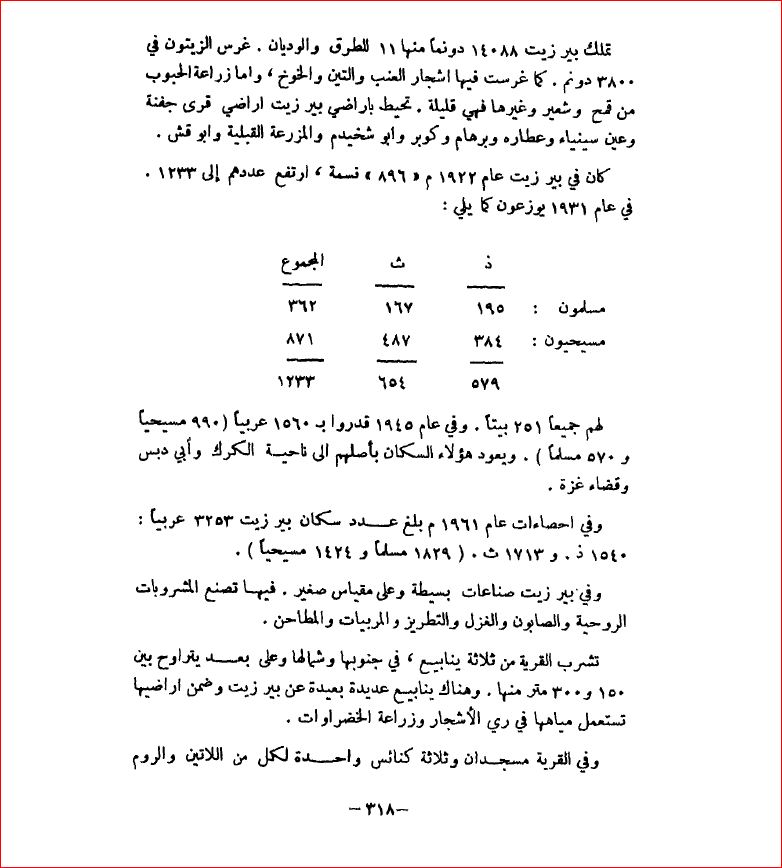 تملك بير زيت ١٤٠٨٨ دونماً منها ١١ للطرق والوديان . غرس الزيتون في
٣٨٠٠ دونم . كما غرست فيها اشجار العنب والتين والخوخ ، واما زراعة الحبوب
من قمح وشعير وغيرها فهي قليلة . تحيط باراضي بير زيت اراضي قرى جفنة
وعين سينياء وعطاره وبرهام وكوبر وابو شخيدم والمزرعة القبلية وابو قش .
كان في بير زيت عام ١٩٢٢ م « ٨٩٦ » نسمة ، ارتفع عددهم إلى ١٢٣٣ .
في عام ١٩٣١ يوزعون كما يلي :
ذ ث المجموع
مسلمون : ١٩٥ ١٦٧ ٣٦٢
مسيحيون : ٣٨٤ ٤٨٧ ٨٧١
٥٧٩ ٦٥٤ ١٢٣٣
لهم جميعاً ٢٥١ بيتاً . وفي عام ١٩٤٥ قدروا بـ ١٥٦٠ عربياً ( ٩٩٠ مسيحياً
و ٥٧٠ مسلماً ) . ويعود هؤلاء السكان بأصلهم الى ناحية الكرك وأبي دبس
وقضاء غزة .
وفي احصاءات عام ١٩٦١ م بلغ عدد سكان بير زيت ٣٢٥٣ عربياً :
١٥٤٠ ذ . و ١٧١٣ ث . ( ١٨٢٩ مسلماً و ١٤٢٤ مسيحياً ) .
وفي بير زيت صناعات بسيطة وعلى مقياس صغير . فيها تصنع المشروبات
الروحية والصابون والغزل والتطريز والمربيات والمطاحن .
تشرب القرية من ثلاثة ينابيع ، في جنوبها وشمالها وعلى بعد يتراوح بين
١٥٠ و ٣٠٠ متر منها . وهناك ينابيع عديدة بعيدة عن بير زيت وضمن اراضيها
تستعمل مياهها في ري الأشجار وزراعة الخضراوات .
وفي القرية مسجدان وثلاثة كنائس واحدة لكل من اللاتين والروم
— ٣١٨ —